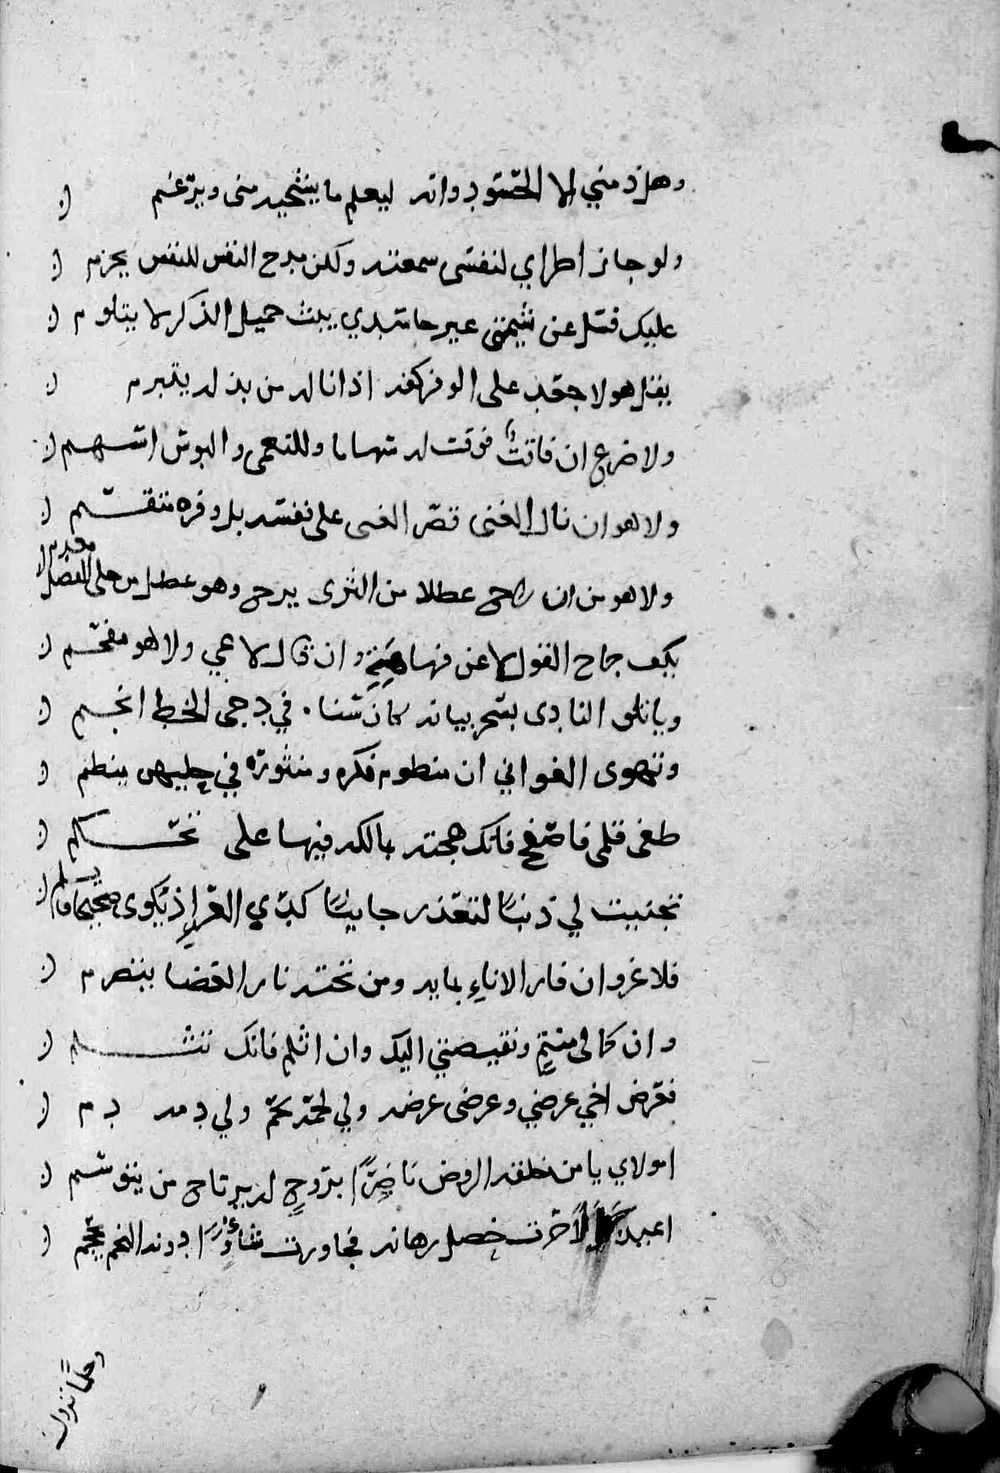 وهل ذمني الا الحسود وانه ليعلم ما ينتحيه مني ويرغم
ولو جاز اطراي لنفسى سمعته ولكن مدح النفس للنفس يحزم
عليك فسل عن شيمتي غير حاسدي يبث جميل الذكر لا يتلوم
يقل هو لا جعد على الوفر كفه اذا ناله من بذله يتبرم
ولا ضرع ان فاتت فوقت له سهاما وللنعمى والبوس اسهم
ولا هو ان نال الغنى قصر الغنى على نفسه بل وفره متقسم
ولا هو من ان راح عطلا من الثرى يرح وهو عطل من حلى الفضل معدم
يكف جماح القول لا عن فهاهة وان قال لا عي ولا هو مفحم
ويانلق النادى بسحر بيانه كان سنا في دجى الخط انجم
وتهوى الغواني ان منظوم فكره ومنثوره في جليهن ينظم
طغى قلمى فاصفح فانك هجته بالكه فيها على تحكم
تجنيت لي ذنبا لتعذر جانيا كذي العر اذ يكوى صحيحا ويسلم
فلا غرو ان فار الاناء بمايه ومن تحته نار القضا بتضرم
وان كمالى منتم ونقيصتي اليك وان اثلم فانك تثلم
فعرض اخي عرضي وعرضى عرضه ولي لحمه لحم ولي دمه دم
امولاي يا من خلقه الروض ناضرا بتروح له يرتاح من يتوسم
اعيذك لاحزت خصل رهانه فجاورت شاوا دونه النجم يحجم
وحلما تدوك